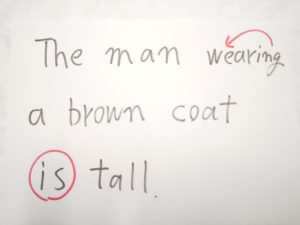 The man wearing
a brown coat
is tall.